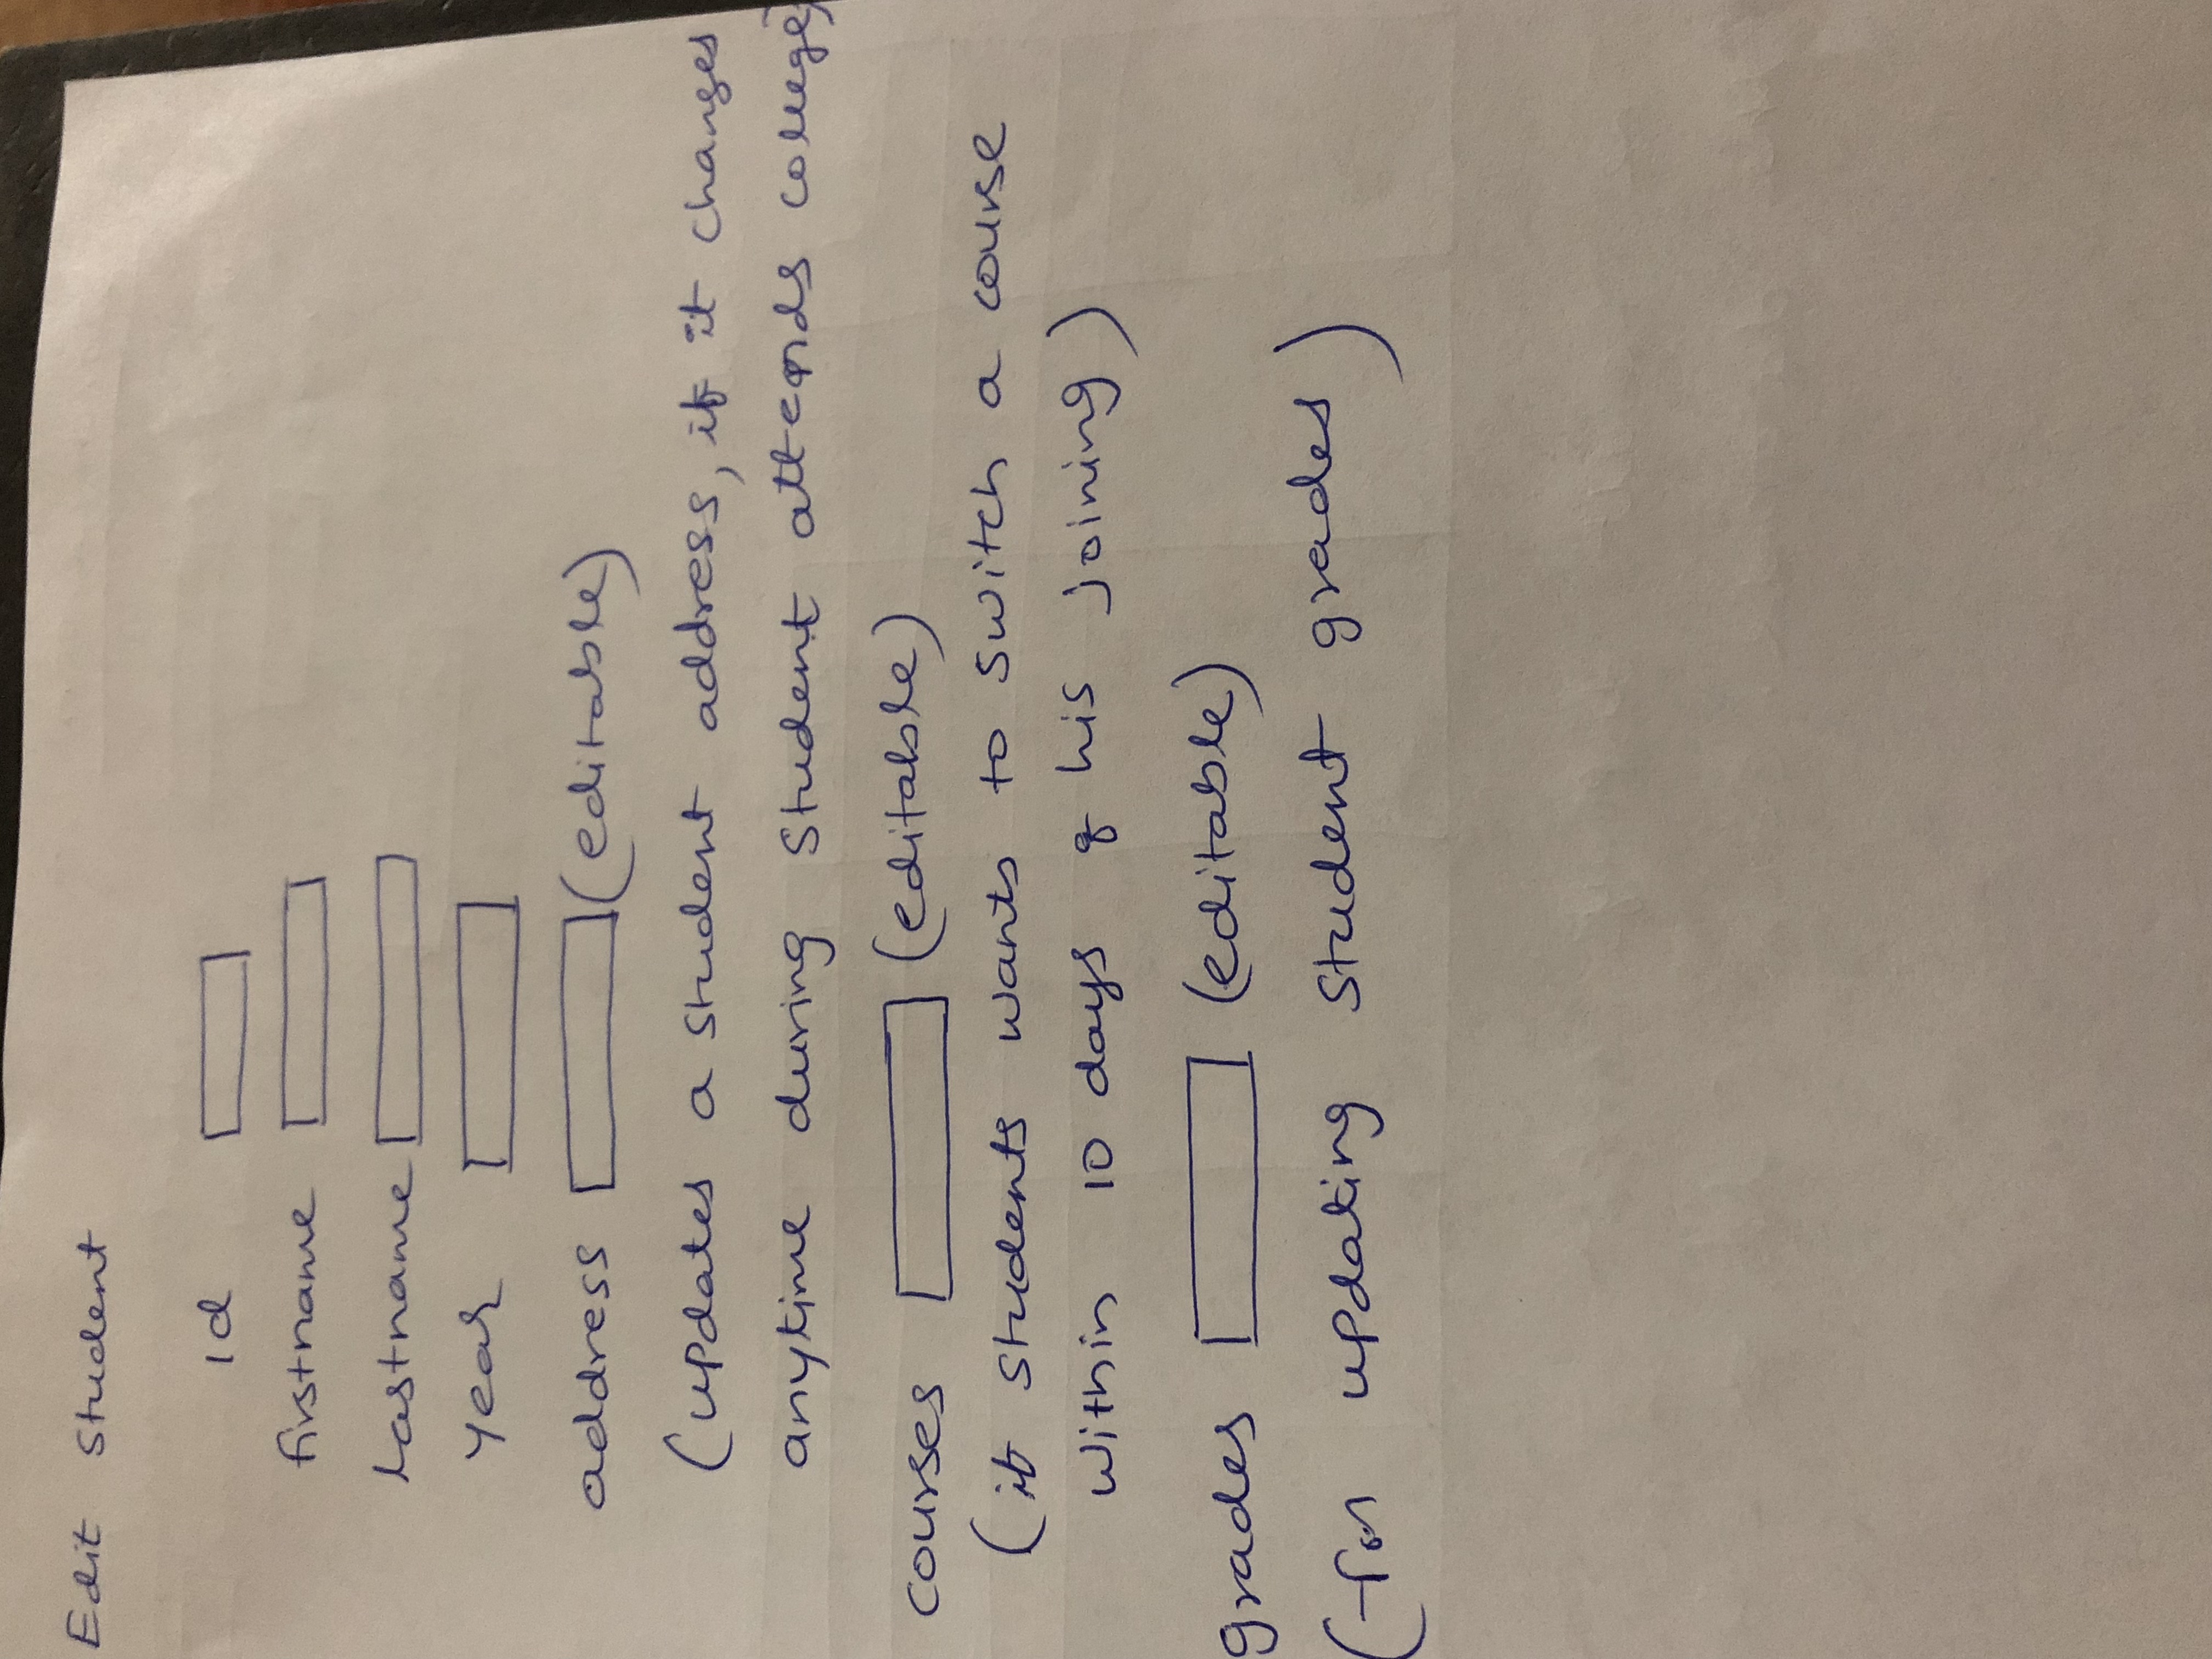 Edit Student
id
firstname
Lastname
Year
address (editable)
(updates a student address, if it changes
anytime during student attends college)
courses (editable)
(if students wants to switch a course
within 10 days of his joining)
grades (editable)
(for updating student grades)